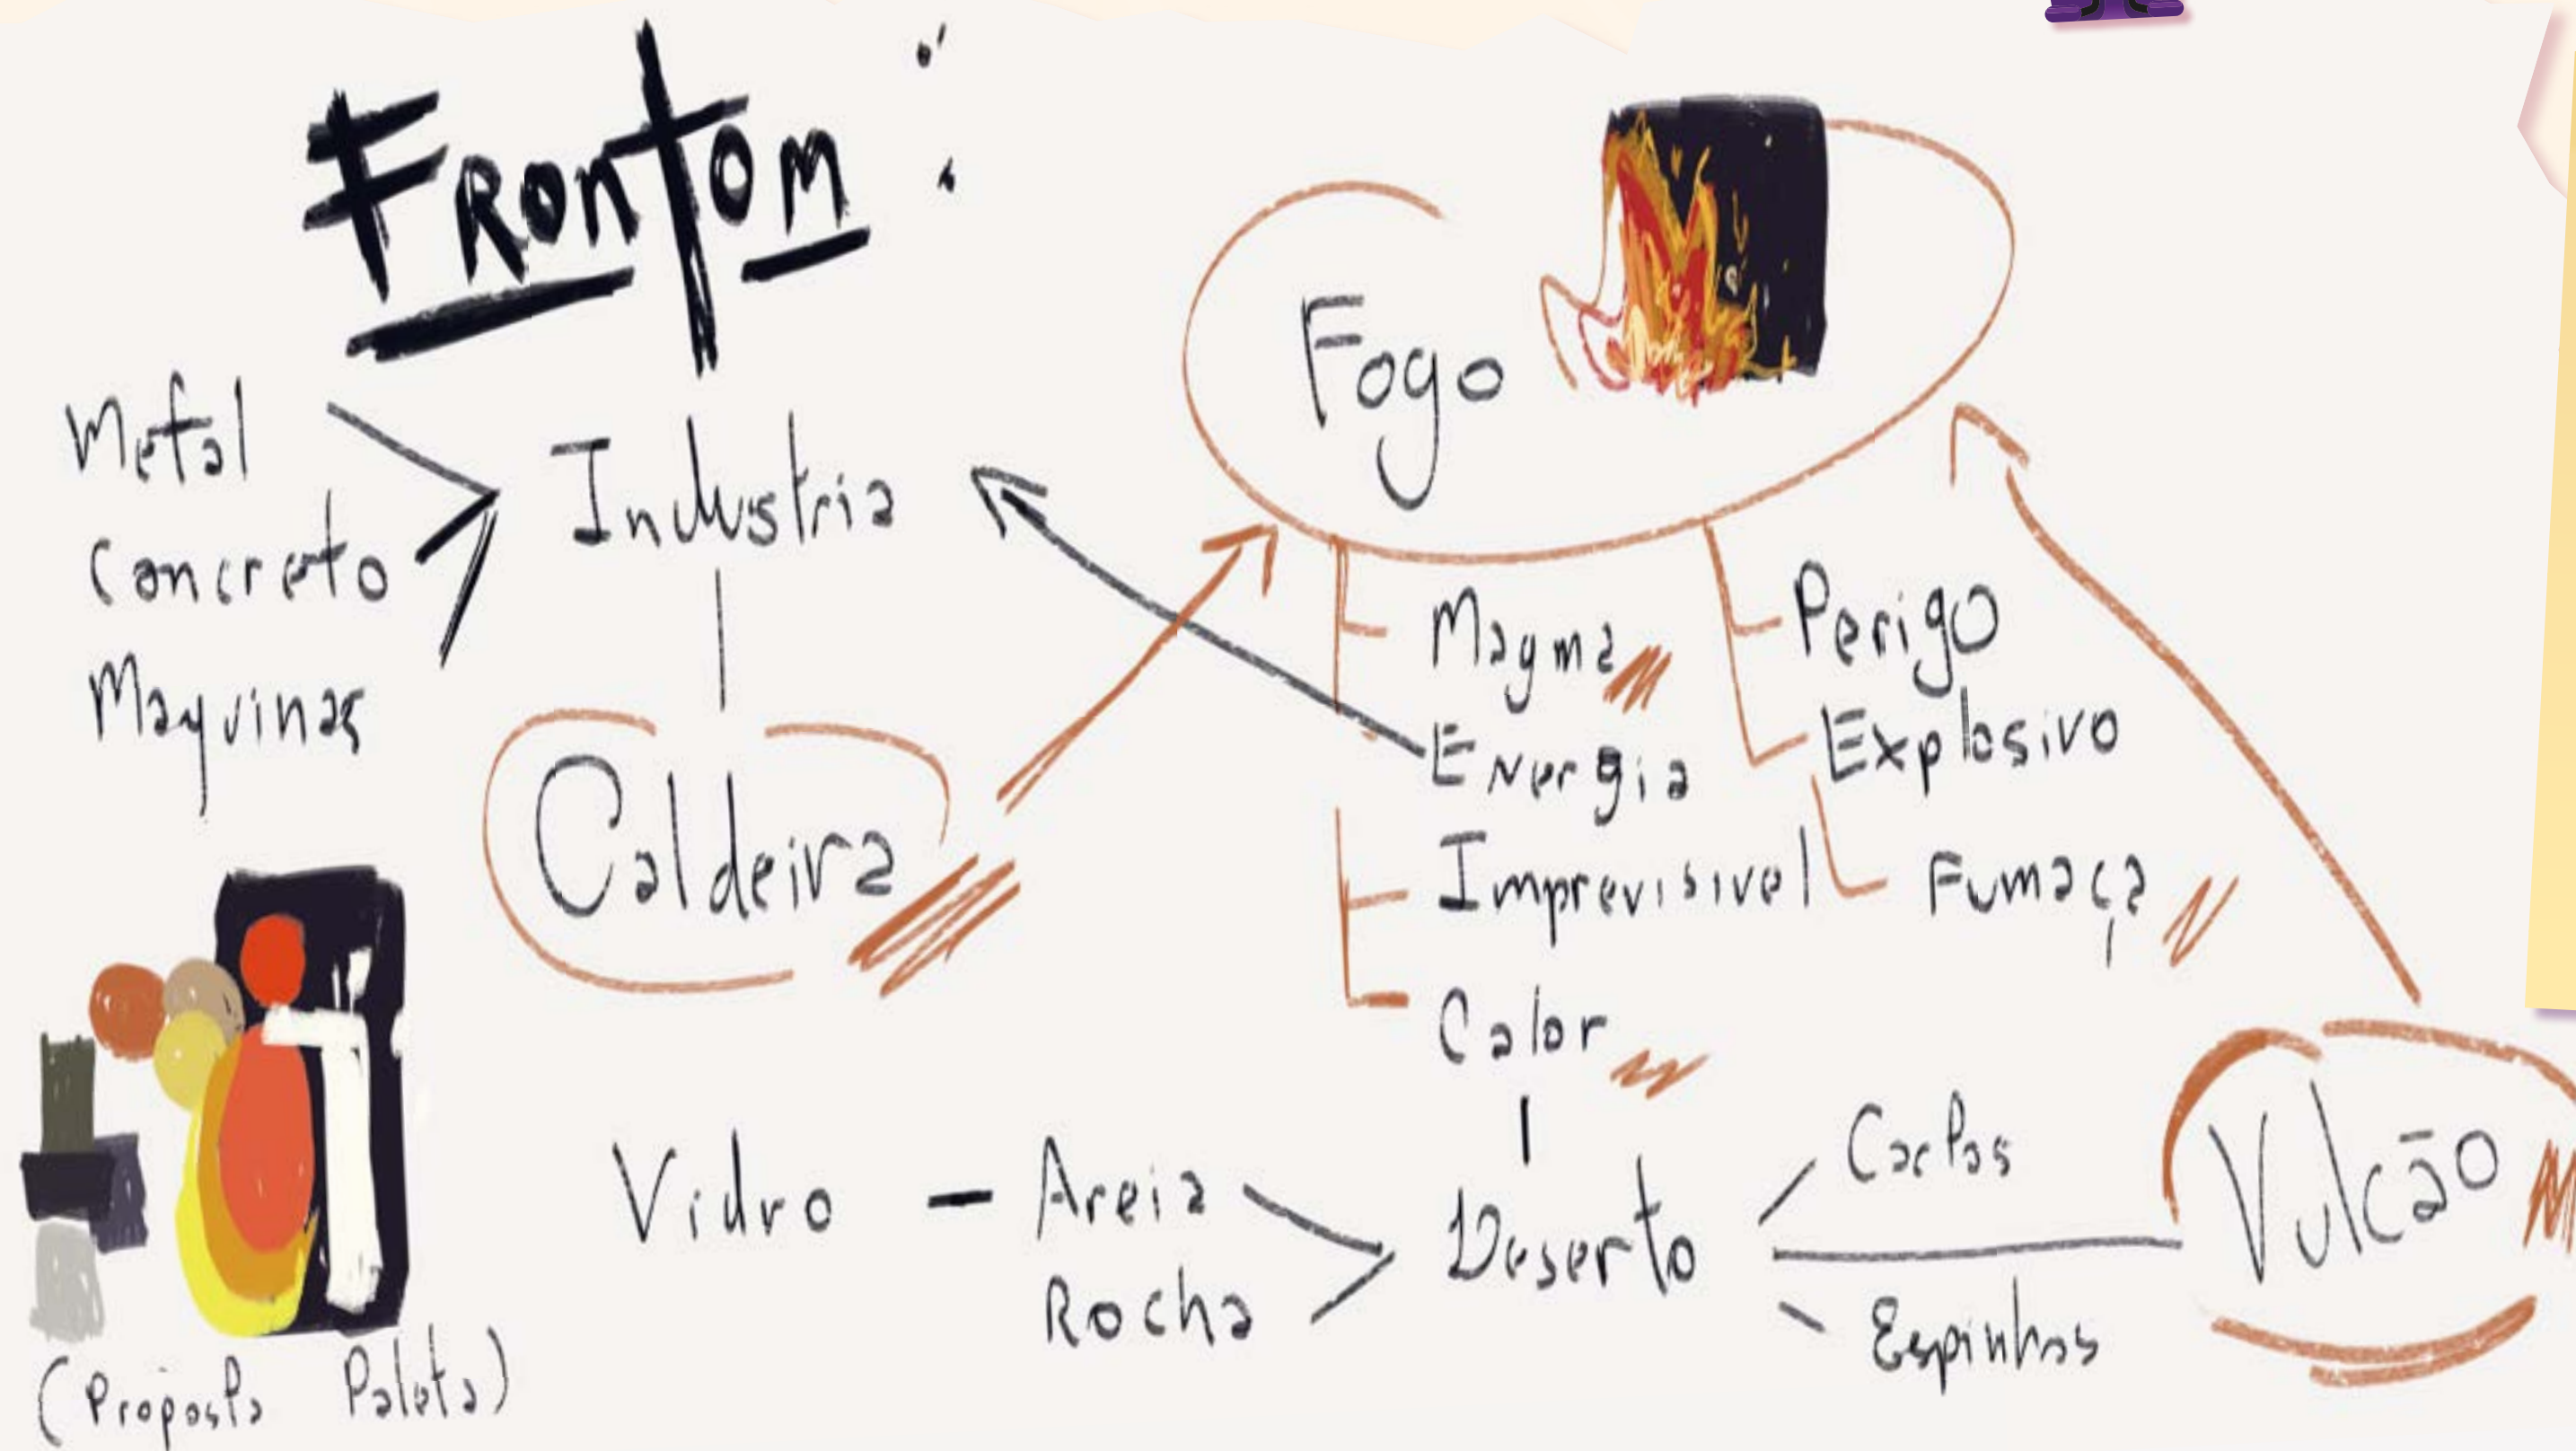 FRonTom :
Metal
Concreto
Maquinas
Industria
Caldeira
Fogo
Magma
Energia
Imprevisivel
Calor
Perigo
Explosivo
Fumaça
Vidro - Areia
Rocha
Deserto
Cactos
Espinhos
Vulcão
(Proposta Paleta)